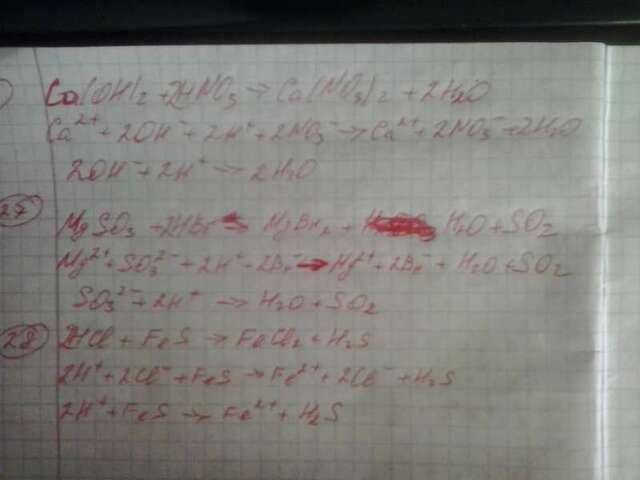 Ca(OH)2 + 2HNO3 → Ca(NO3)2 + 2H2O
Ca2+ + 2OH- + 2H+ + 2NO3- → Ca2+ + 2NO3- + 2H2O
2OH- + 2H+ → 2H2O
27 MgSO3 + 2HBr → MgBr2 + H2O + SO2
Mg2+ + SO3 2- + 2H+ + 2Br- → Mg2+ + 2Br- + H2O + SO2
SO3 2- + 2H+ → H2O + SO2
28 2HCl + FeS → FeCl2 + H2S
2H+ + 2Cl- + FeS → Fe2+ + 2Cl- + H2S
2H+ + FeS → Fe2+ + H2S